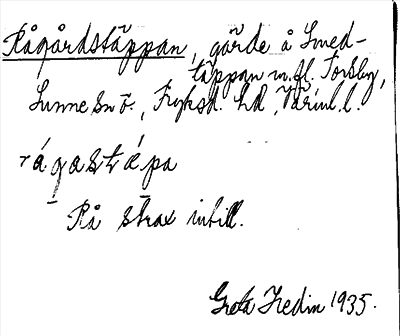 Rågårdstäppan, gärde å Smed-
täppan m.fl. Torsby,
Sunne sn ö., Fryksd. hd, Värml. l.
rágastǽpa
Rå strax intill.
Greta Hedin 1935.